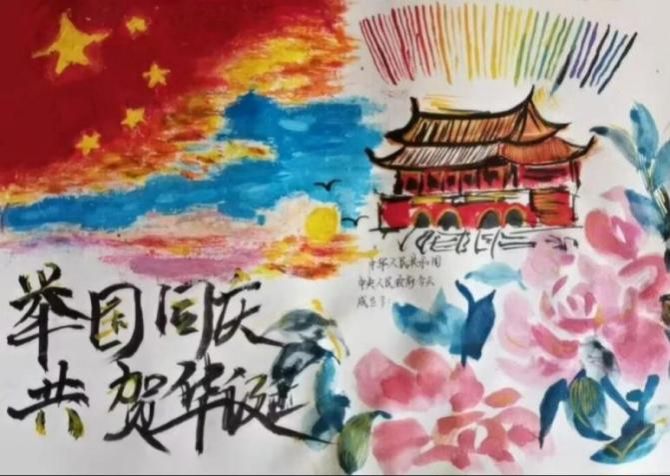 举国同庆
共贺华诞
中华人民共和国
中央人民政府今天
成立了!